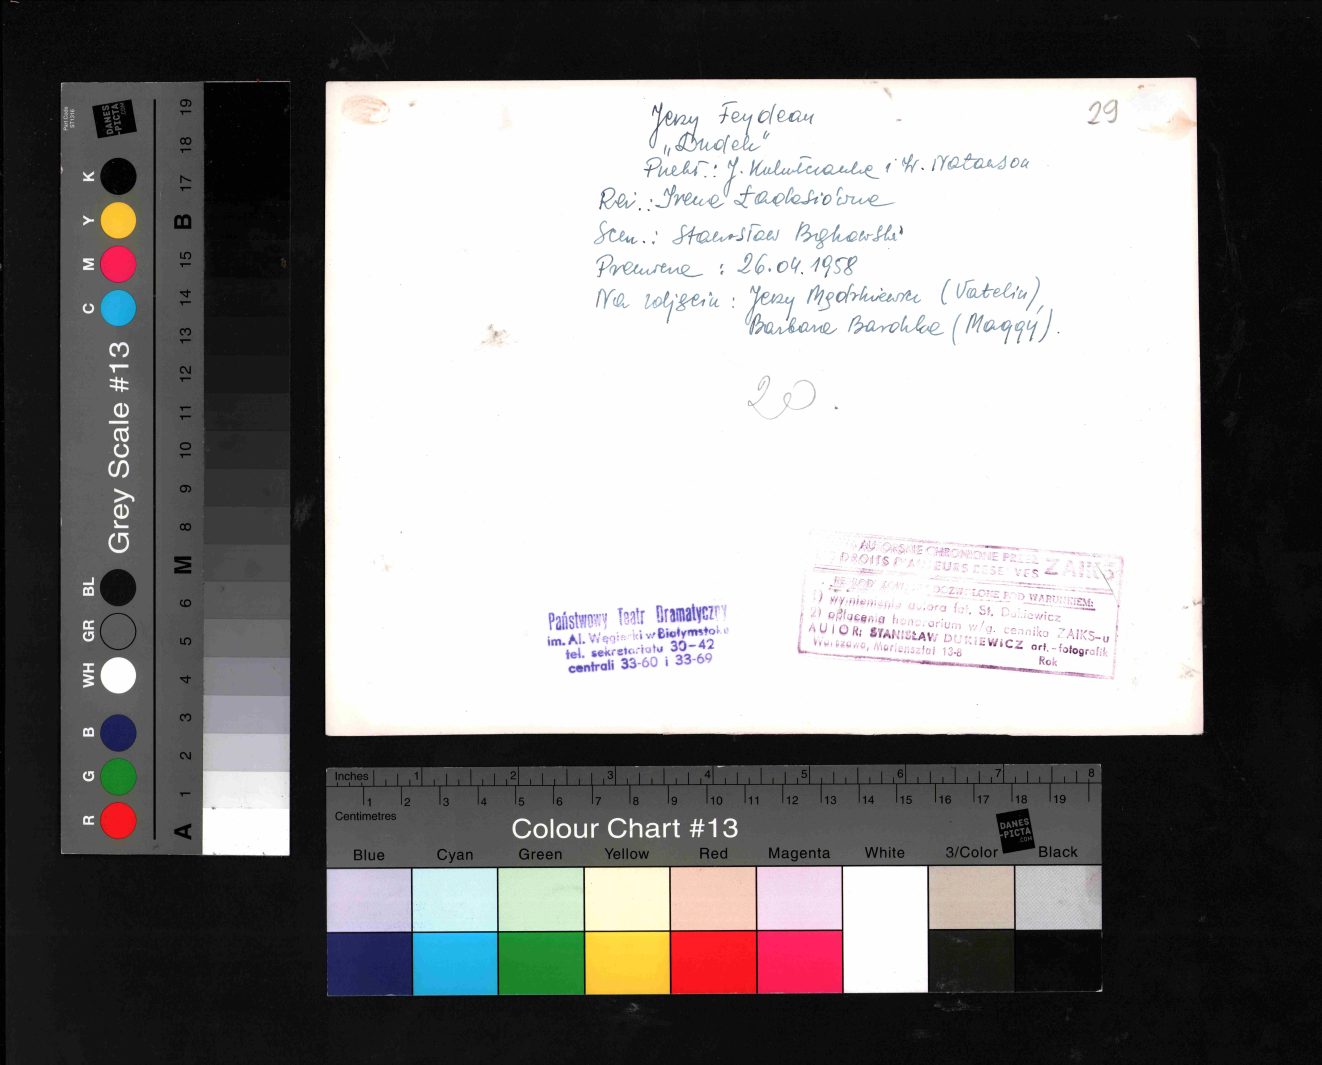 29
Jerzy Feydeau
„Dudek"
Przekł.: J. i W. Natanson
Reż.: Irena Ładosiówna
Scen.: Stanisław Bąkowski
Premiera : 26.04.1958
Na zdjęciu : Jerzy (Vatelin),
Barbara Barchka (Maggy).
20.
Państwowy Teatr Dramatyczny
im. Al. Węgierki w Białymstoku
tel. sekretariatu 30-42
centrali 33-60 i 33-69
AUTORSKIE CHRONIONE PRZEZ ZAIKS
DROITS D'AUTEURS RESERVES
DOZWOLONE POD WARUNKIEM:
1) wymienienia autora fot. St. Dukiewicz
2) opłacenia honorarium w/g. cennika ZAIKS-u
AUTOR: STANISŁAW DUKIEWICZ art.-fotografik
Warszawa, Mariensztat 13-8 Rok
Grey Scale #13
DANES
-PICTA
.COM
K Y M C
BL GR WH
B G R
19 18 17 B 15 14 13 12 11 10 9 8 M 6 5 4 3 2 1 A
Inches 1 2 3 4 5 6 7 8
1 2 3 4 5 6 7 8 9 10 11 12 13 14 15 16 17 18 19
Centimetres
Colour Chart #13
DANES
-PICTA
.COM
Blue Cyan Green Yellow Red Magenta White 3/Color Black